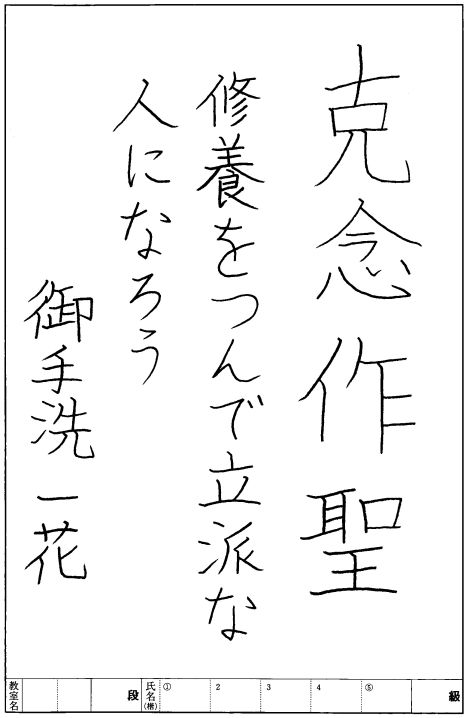 克念作聖
修養をつんで立派な
人になろう
御手洗一花
教室名 段 氏名(権) ① 2 3 4 ⑤ 級